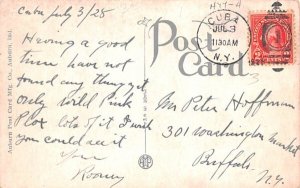 Cuba July 3/25
Having a good
time have not
found any thing yet
only World Pink
Plox lots of it I wish
you could see it
your
Rooney
Auburn Post Card Mfg. Co., Auburn, Ind.
Post
Card
CUBA
JUL 3
1130AM
N.Y.
Mr Peter Hoffman
301 Washington Market
Buffalo
N.Y.